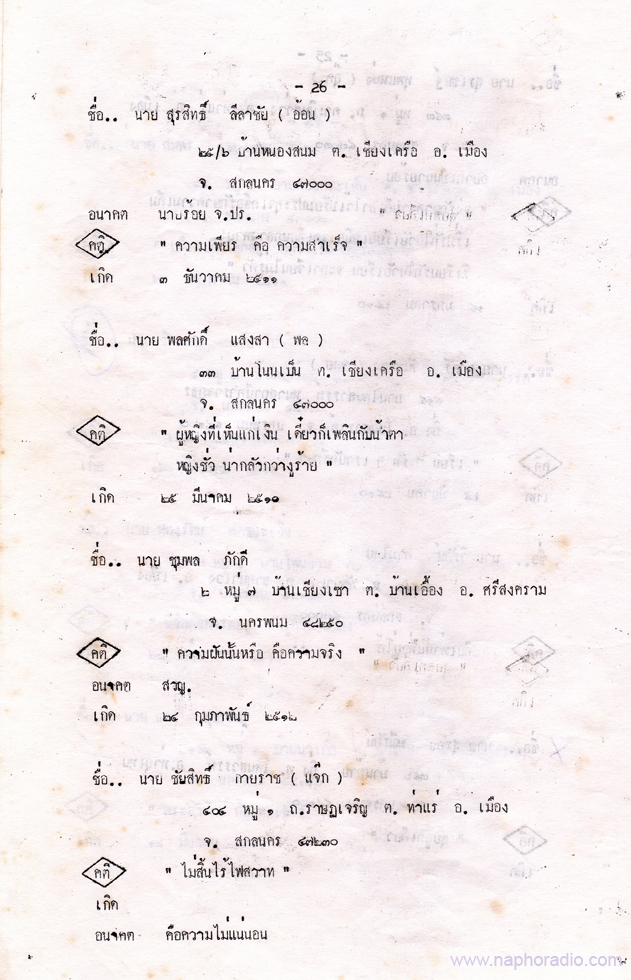 - 26 -
ชื่อ.. นาย สุรสิทธิ์ ลีลาชัย ( อ้อน )
๒๕/๖ บ้านหนองสนม ต. เชียงเครือ อ. เมือง
จ. สกลนคร ๔๗๐๐๐
อนาคต นายร้อย จ.ปร.
คติ " ความเพียร คือ ความสำเร็จ "
เกิด ๓ ธันวาคม ๒๕๑๑
ชื่อ.. นาย พลศักดิ์ แสงสา ( พล )
๓๓ บ้านโนนเบ็น ต. เชียงเครือ อ. เมือง
จ. สกลนคร ๔๗๐๐๐
คติ " ผู้หญิงที่เห็นแก่เงิน เดี๋ยวก็เพลินกับน้ำตา
หญิงชั่ว น่ากลัวกว่างูร้าย "
เกิด ๒๕ มีนาคม ๒๕๑๐
ชื่อ.. นาย ชุมพล ภักดี
๒ หมู่ ๗ บ้านเชียงเซา ต. บ้านเอื้อง อ. ศรีสงคราม
จ. นครพนม ๔๘๒๕๐
คติ " ความฝันนั้นหรือ คือความจริง "
อนาคต สวญ.
เกิด ๒๔ กุมภาพันธ์ ๒๕๑๒
ชื่อ.. นาย ชัยสิทธิ์ กายราช ( แจ๊ก )
๔๐๔ หมู่ ๑ ถ.ราษฎเจริญ ต. ท่าแร่ อ. เมือง
จ. สกลนคร ๔๗๒๓๐
คติ " ไม่สิ้นไร้ไฟสวาท "
เกิด
อนาคต คือความไม่แน่นอน
www.naphoradio.com